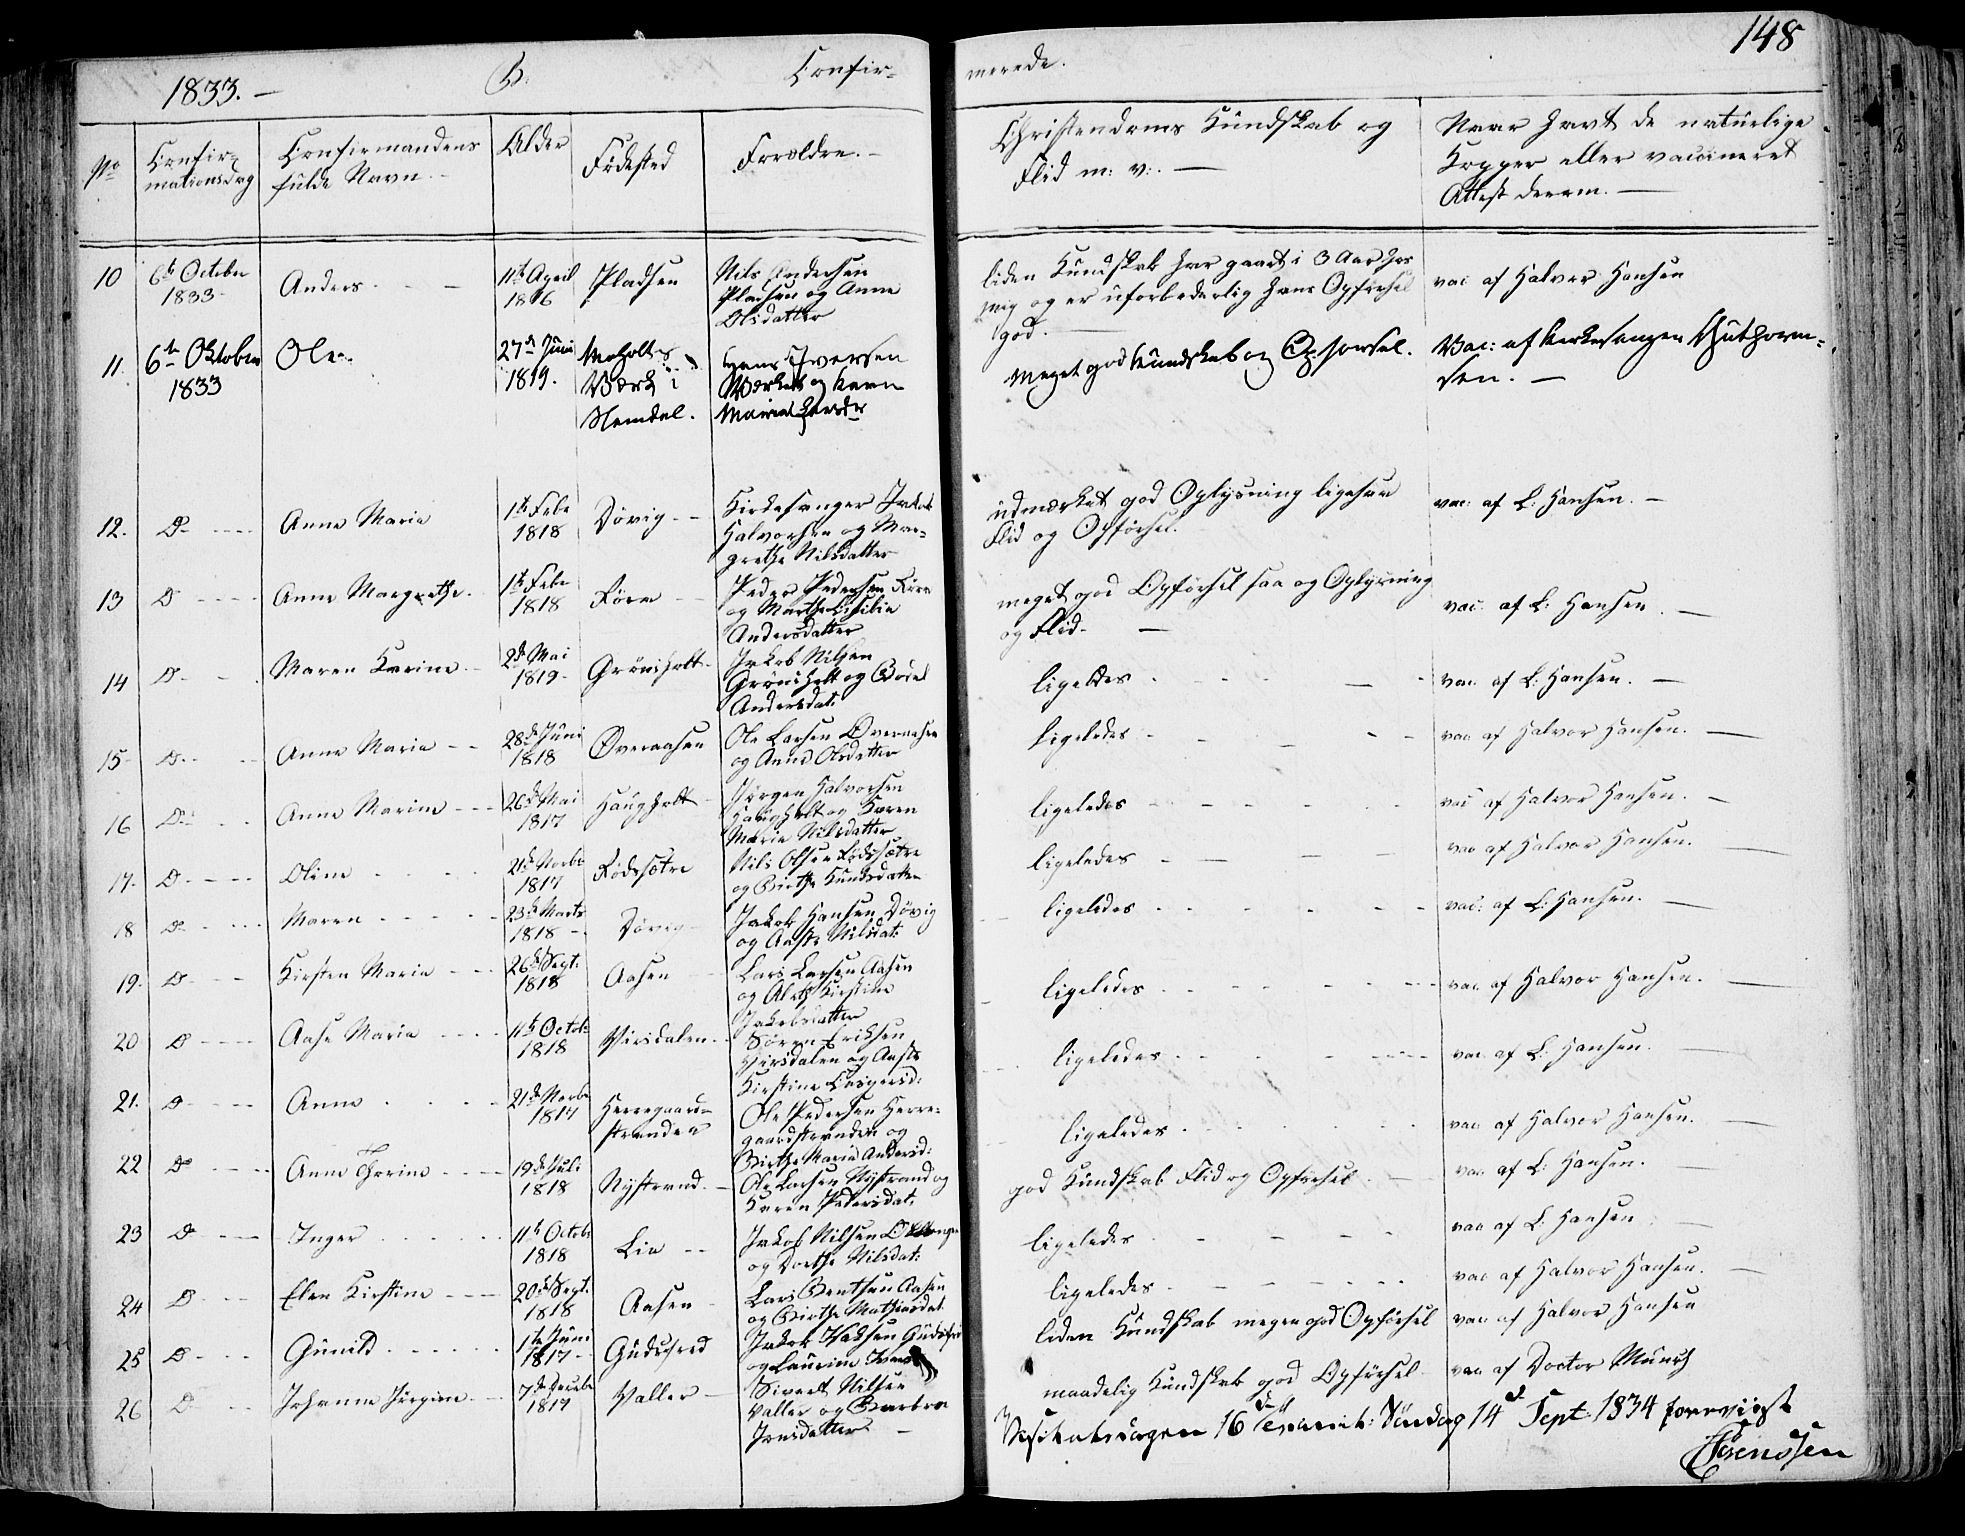 148
1833. —
B.
Confir-
merede.
No
Confir-
mationsdag
Confirmandens
fulde Navn. —
Alder
Fødested
Forældre. —
Christendoms Kundskab og
Flid m: v: . —
Naar havt de naturlige
Kopper eller vaccineret
Attest derom. —
10
6te October
1833
Anders
11te April
1816
Pladsen
Nils Andersen
Pladsen og Anne
Olsdatter
liden Kundskab har gaaet i 3 Aar hos
mig og er uforbederlig hans Opførsel
god.
vac af Halvor Hansen
11.
6te Oktober
1833
Ole
27de Juni
1819.
Moholts
Værk i
Slemdal.
Hens Iversen
Værket og Karen
Maria
Meget god Kundskab og Opførsel.
Vac: af Kirkesanger Guthorm-
sen. —
12.
D
Anne Maria
1te Febr
1818
Døvig
Kirkesanger Jakob
Halvorsen og Mar-
grethe Nilsdatter
udmærket god Oplysning ligesaa
Flid og Opførsel.
vac: af L: Hansen. —
13
D
Anne Margrethe.
1te Febr
1818
Føra
Peder Pedersen Føra
og Marthe Cicilia
Andersdatter
meget god Opførsel saa og Oplysning
og Flid. —
vac. af L: Hansen. —
14
D
Maren Karine
2de Mai
1819
Grønsholt
Jakob Nilsen
Grønsholt og Bodel
Andersdat:
ligeledes
vac. af L: Hansen. —
15
D
Anne Maria
28de Juni
1818
Øveraasen
Ole Larsen Øveraasen
og Anne Olsdatter
ligeledes
vac af Halvor Hansen. —
16
D
Anne Marine
26de Mai
1817
Haugholt
Jørgen Halvorsen
Haugholt og Karen
Maria Nilsdatter
ligeledes
vac af Halvor Hansen. —
17.
D
Oline
21de Novbr
1817
Rødsætre
Nils Olsen Rødsætre
og Birthe Knudsdatter
ligeledes
vac af Halvor Hansen. —
18
D
Maren
23de Marts
1818
Døvig
Jakob Hansen Døvig
og Aaste Nilsdat:
ligeledes
vac: af L: Hansen. —
19.
D
Kirsten Maria
26de Sept:
1818
Aasen
Lars Larsen Aasen
og Aleth Kirstine
Jakobsdatter
ligeledes
vac af Halvor Hansen. —
20
D
Aase Maria
11te Octob:
1818
Virsdalen
Søren Eriksen
Virsdalen og Aaste
Kirstine Caspersd:
ligeledes
vac. af L: Hansen. —
21.
D
Anne
21de Novbr
1817
Herregaards-
stranden
Ole Pedersen Herre-
gaardstranden og
Birthe Maria Andersd:
ligeledes
vac af Halvor Hansen. —
22
D
Anne Thorine
19de Juli
1818
Nystrand
Ole Larsen Nystrand og
Karen Pedersdat:
god Kundskab Flid og Opførsel
vac af L: Hansen. —
23
D
Inger
11te Octobr
1818
Lia
Jakob Nilsen
og Dorthe Nilsdat:
ligeledes
vac af L: Hansen —
24
D
Elen Kirstine
20de Sept:
1818
Aasen
Lars Bentsen Aasen
og Birthe Mathiasdat
ligeledes
vac af Halvor Hansen. —
25
D
Gunild
1te Juni
1817
Gudsfred
Jakob Isaksen Gudsfred
og Laurine
liden Kundskab megen god Opførsel
vac af Halvor Hansen
26
D
Johanne Jørgine
7de Decebr
1817
Valler
Sivert Nilsen
Valler og Barbra
Jonsdatter —
maadelig Kundskab god Opførsel
vac af Doctor Münch
Visitatsdagen 16de Søndag 14de Sept. 1834 foreviist
Sørenssen